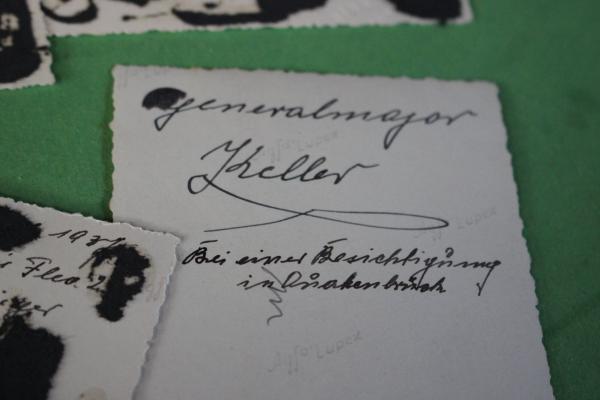 Generalmajor
Keller
Bei einer Besichtigung
in Quakenbrück
Agfa-Lupex
Agfa-Lupex
Lupex
193